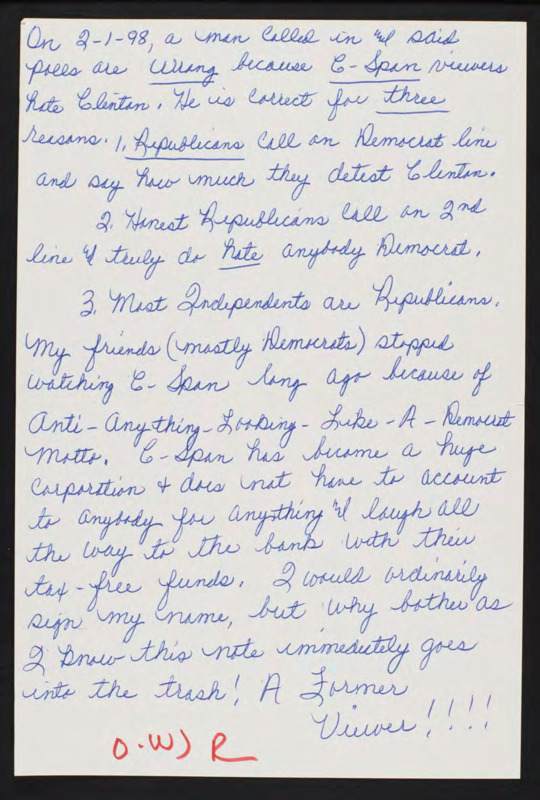 On 2-1-98, a man called in & said
polls are Wrong because C-Span viewers
hate Clinton. He is correct for three
reasons. 1. Republicans call on Democrat line
and say how much they detest Clinton.
2. Honest Republicans call on 2nd
line & truly do hate anybody Democrat.
3. Most Independents are Republicans.
My friends (mostly Democrats) stopped
watching C-Span long ago because of
Anti-Anything-Looking-Like-A-Democrat
Motto. C-Span has become a huge
corporation & does not have to account
to anybody for anything & laugh all
the way to the bank with their
tax-free funds. I would ordinarily
sign my name, but why bother as
I know this note immediately goes
into the trash! A Former
Viewer!!!!
O.W) R